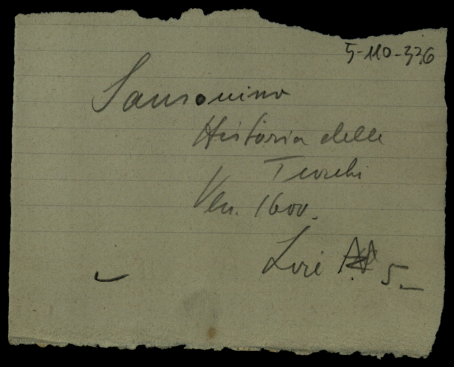 5-110-336
Sansovino
Historia delle
Turchi
Ven. 1600.
Lire 5.—